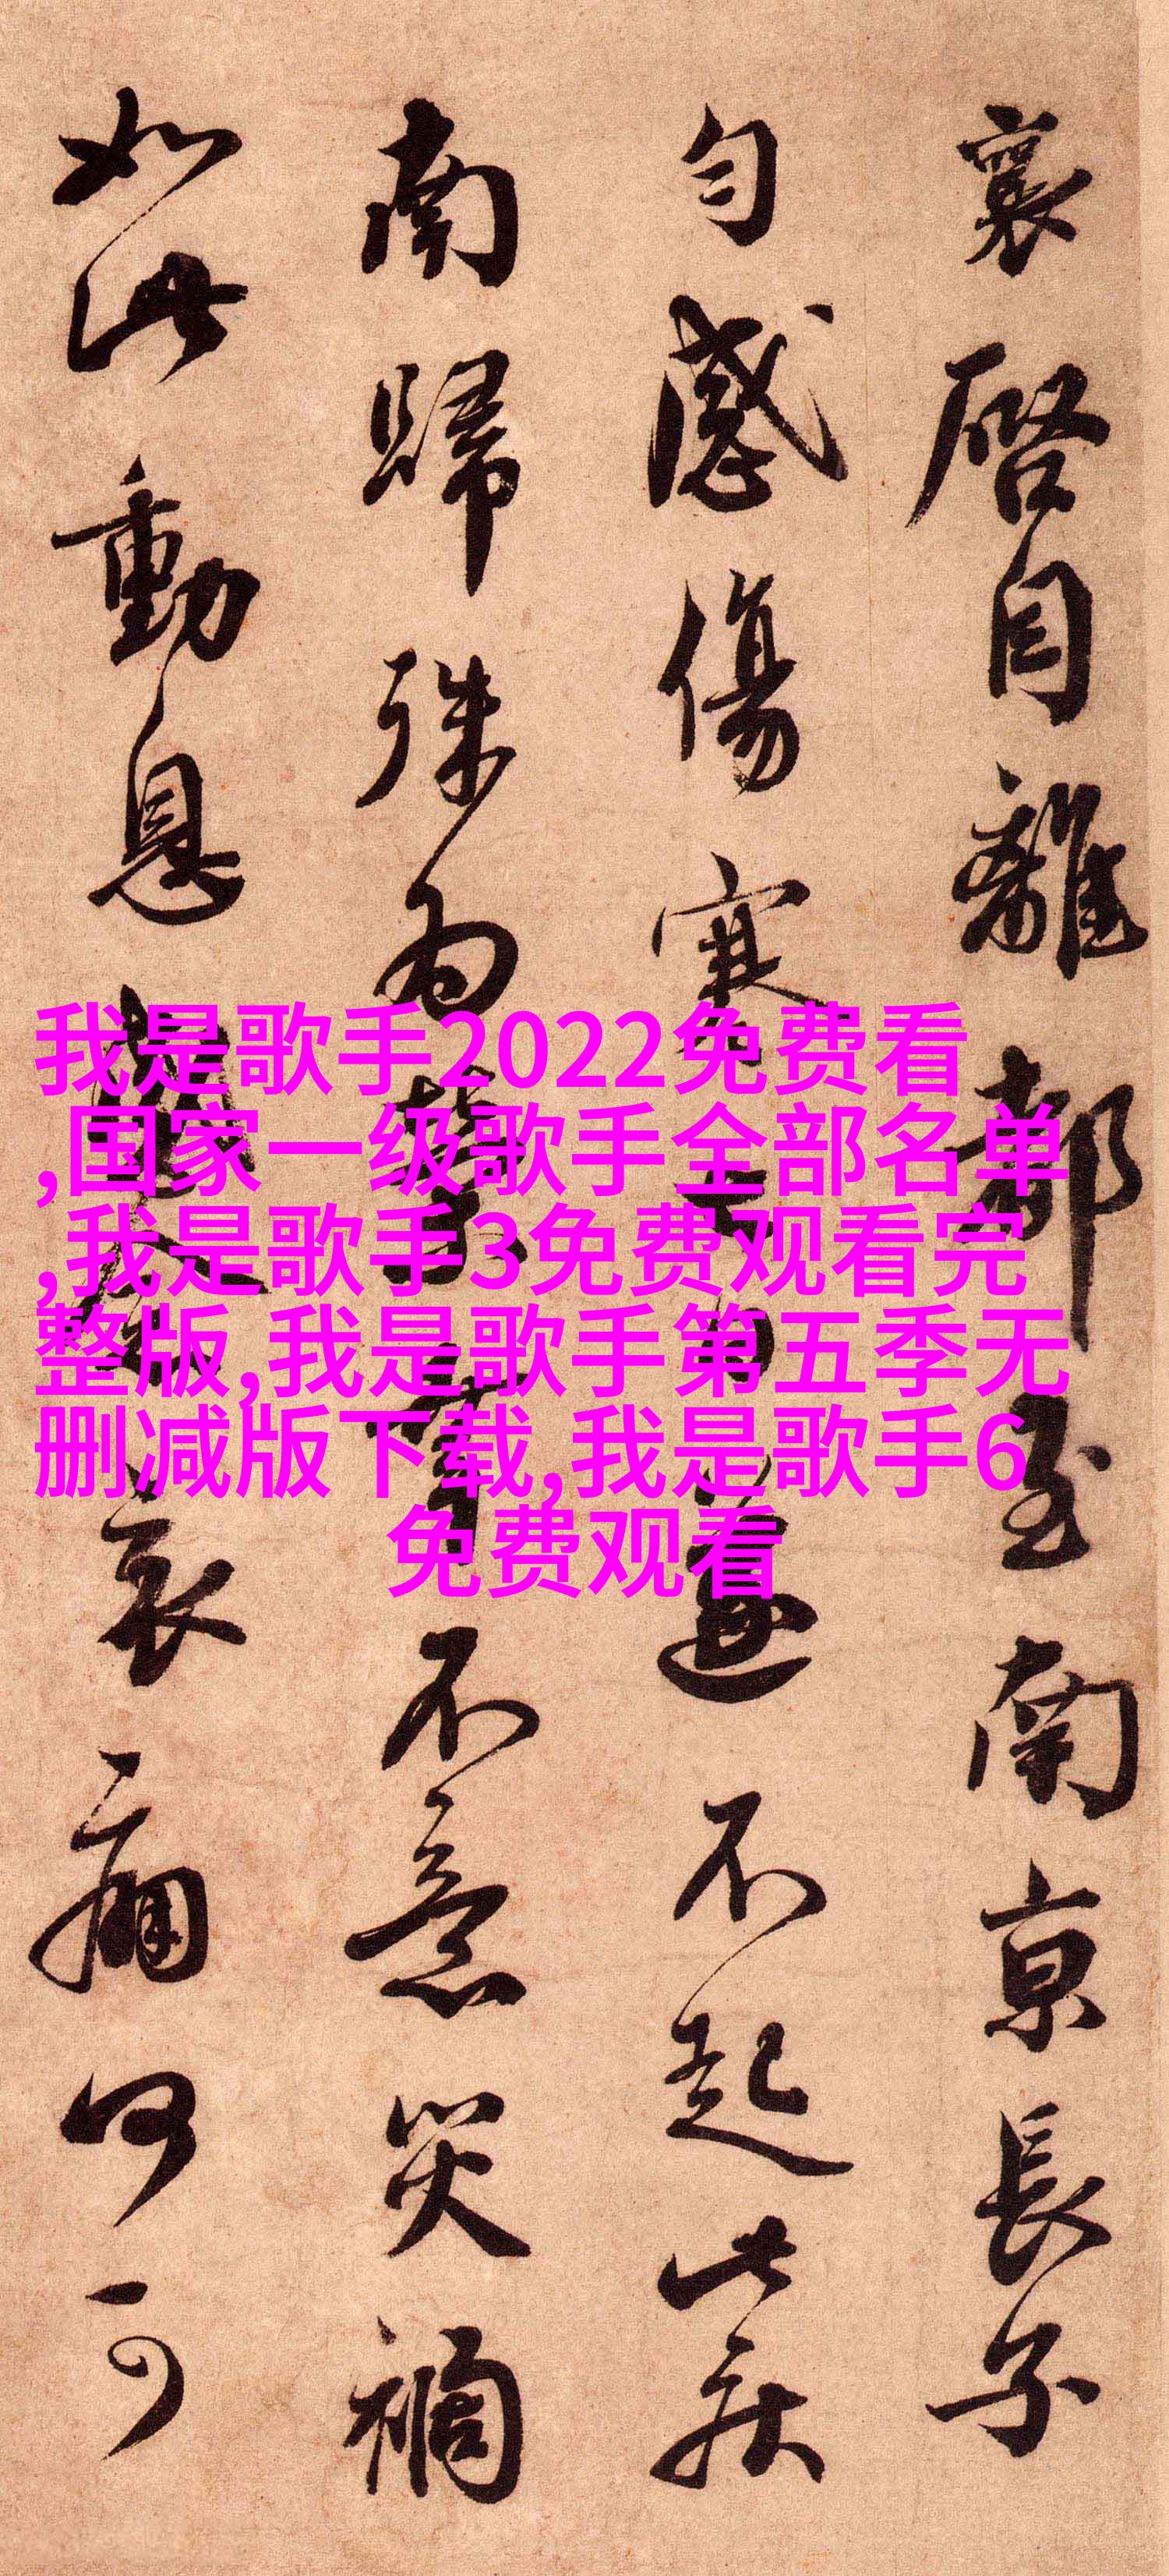 襄啓自離都至南京長子
匀感傷寒七日遂不起此疾
南歸殊為榮幸不意災禍
如此動息哀痛何可
我是歌手2022免费看
,国家一级歌手全部名单
,我是歌手3免费观看完
整版,我是歌手第五季无
删减版下载,我是歌手6
免费观看